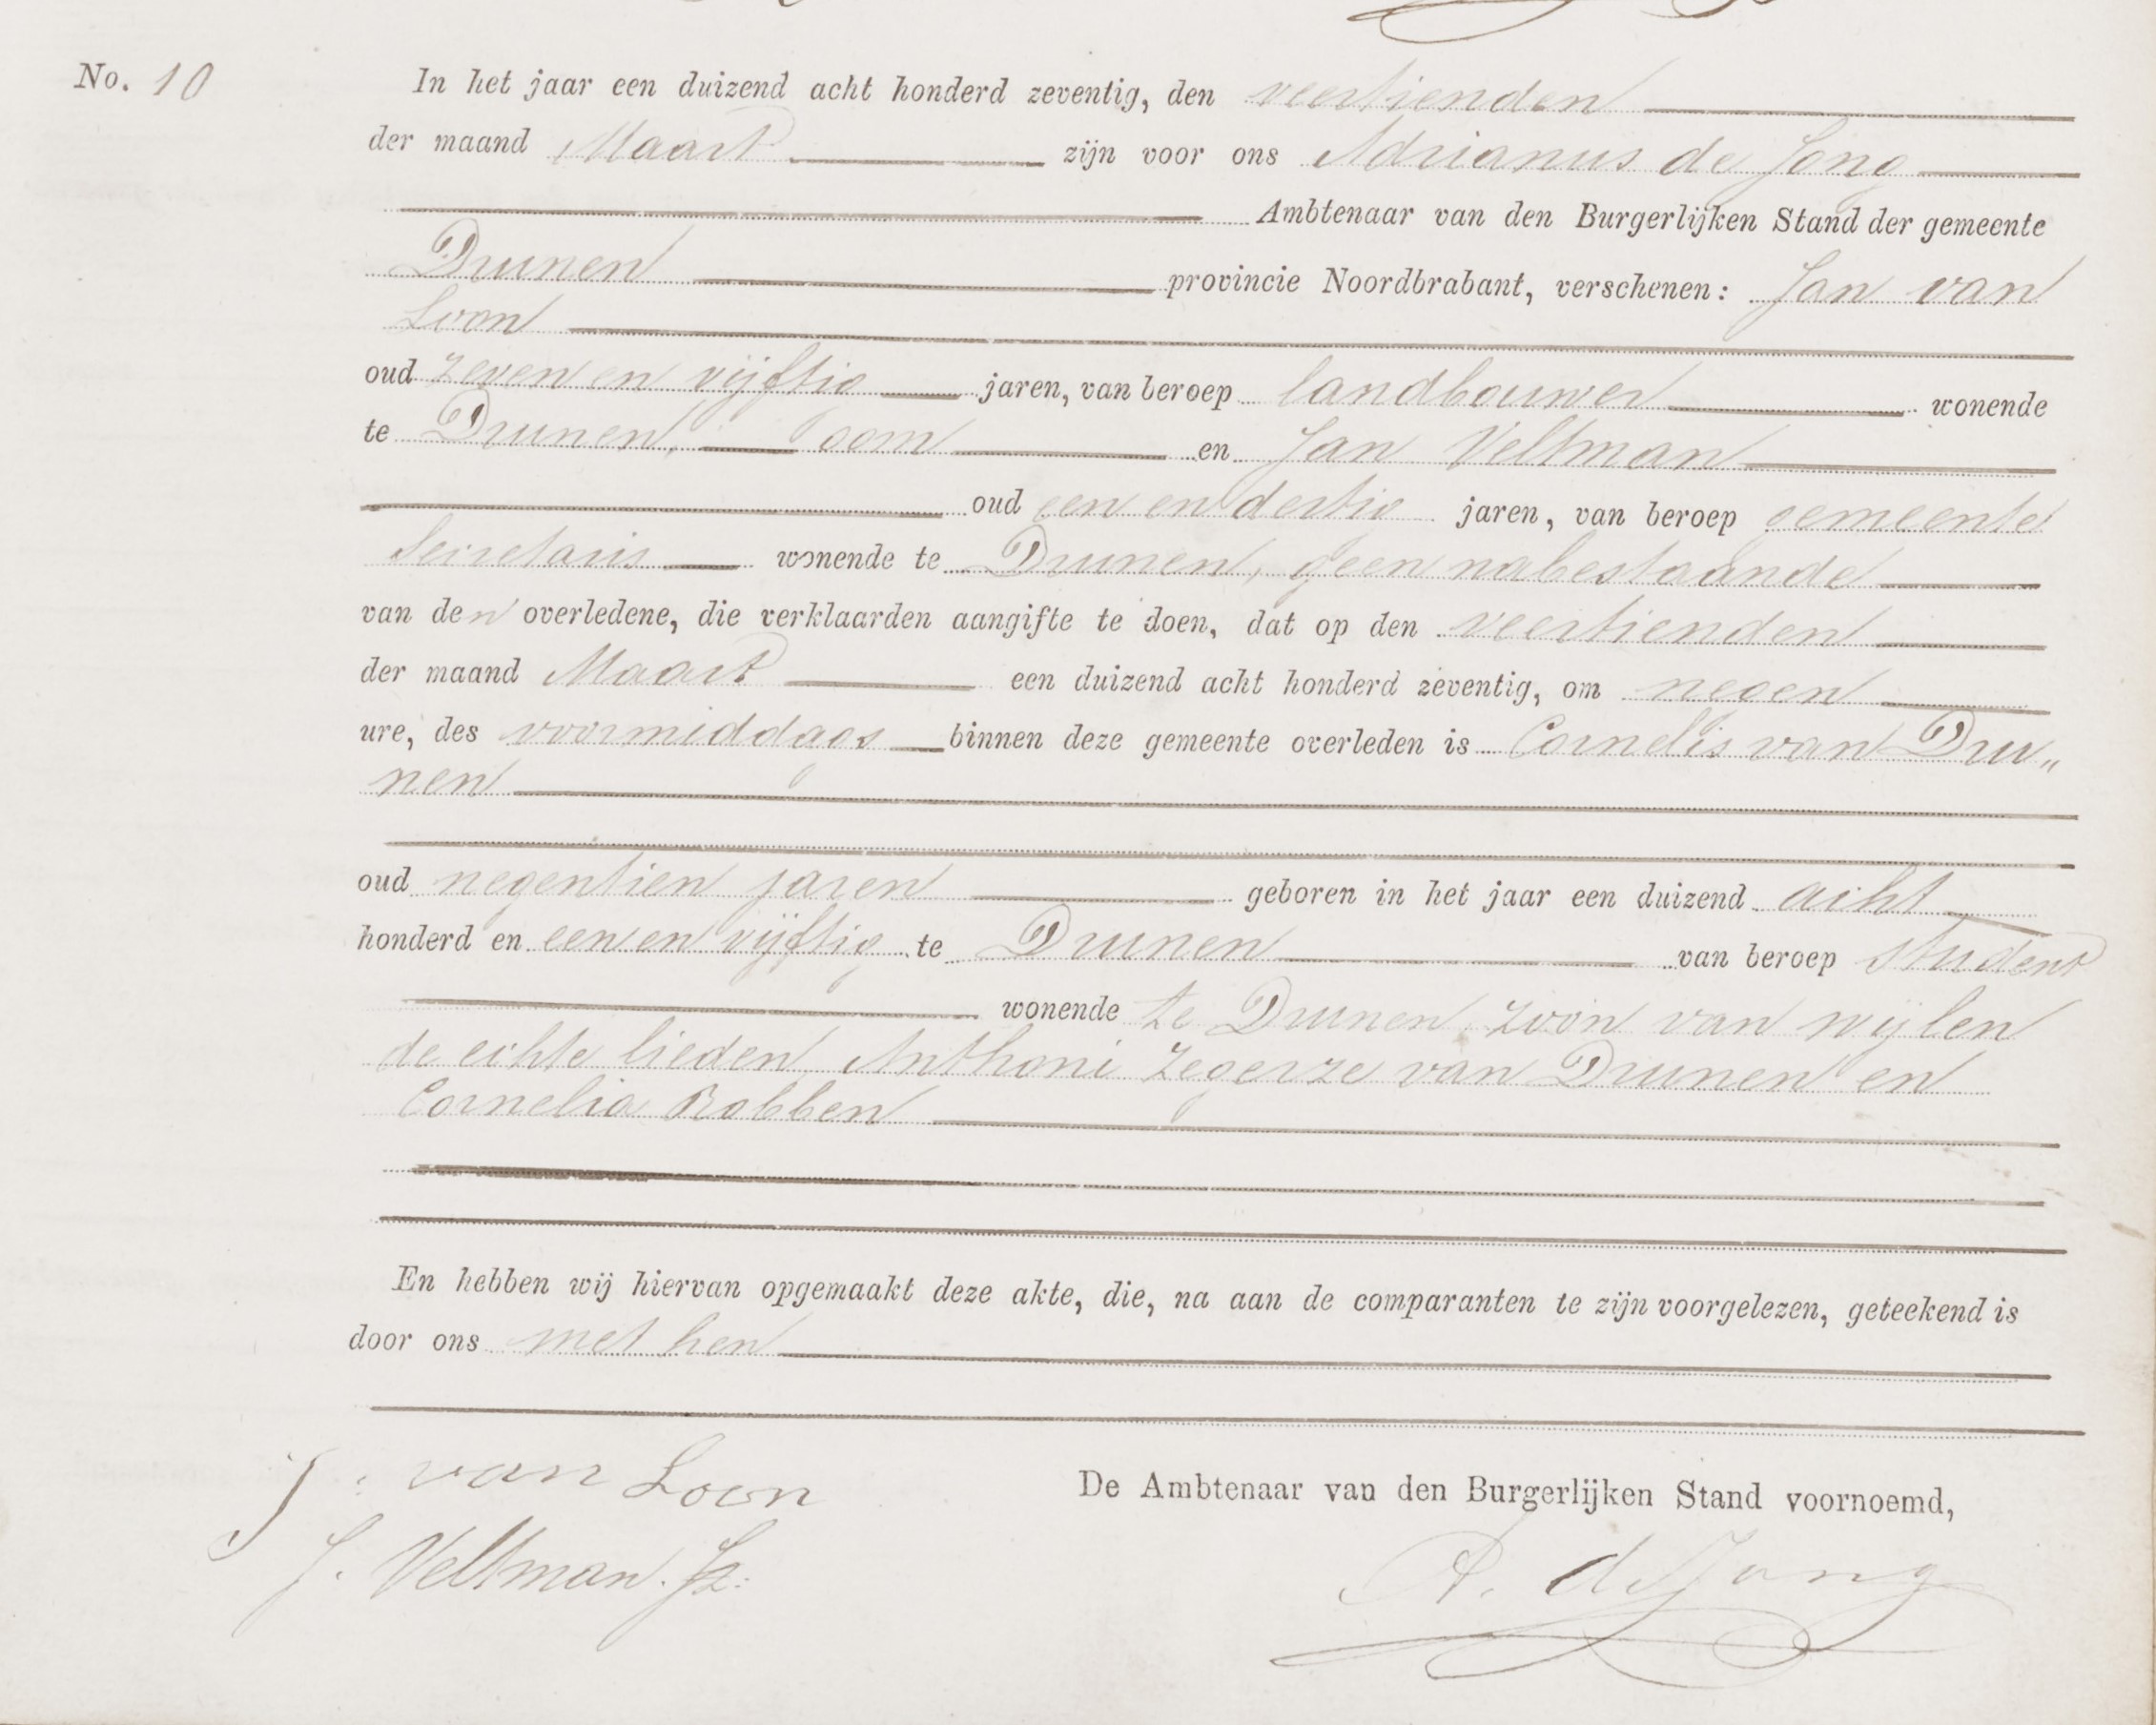 No. 10
In het jaar een duizend acht honderd zeventig, den veertienden
der maand Maart zijn voor ons Adrianus de Jong
Ambtenaar van den Burgerlijken Stand der gemeente
Drunen provincie Noordbrabant, verschenen: Jan van
Loon
oud zeven en vijftig jaren, van beroep landbouwer wonende
te Drunen, oom en Jan Veltman
oud een en dertig jaren, van beroep gemeente
Secretaris wonende te Drunen, geen nabestaande
van den overledene, die verklaarden aangifte te doen, dat op den veertienden
der maand Maart een duizend acht honderd zeventig, om negen
ure, des voormiddags binnen deze gemeente overleden is Cornelis van Dru„
nen
oud negentien jaren geboren in het jaar een duizend acht
honderd en een en vijftig te Drunen van beroep student
wonende te Drunen, zoon van wijlen
de echte lieden Anthoni Zegerze van Drunen en
Cornelia Robben
En hebben wij hiervan opgemaakt deze akte, die, na aan de comparanten te zijn voorgelezen, geteekend is
door ons met hen
J: van Loon
De Ambtenaar van den Burgerlijken Stand voornoemd,
J. Veltman. Jz:
A. d Jong